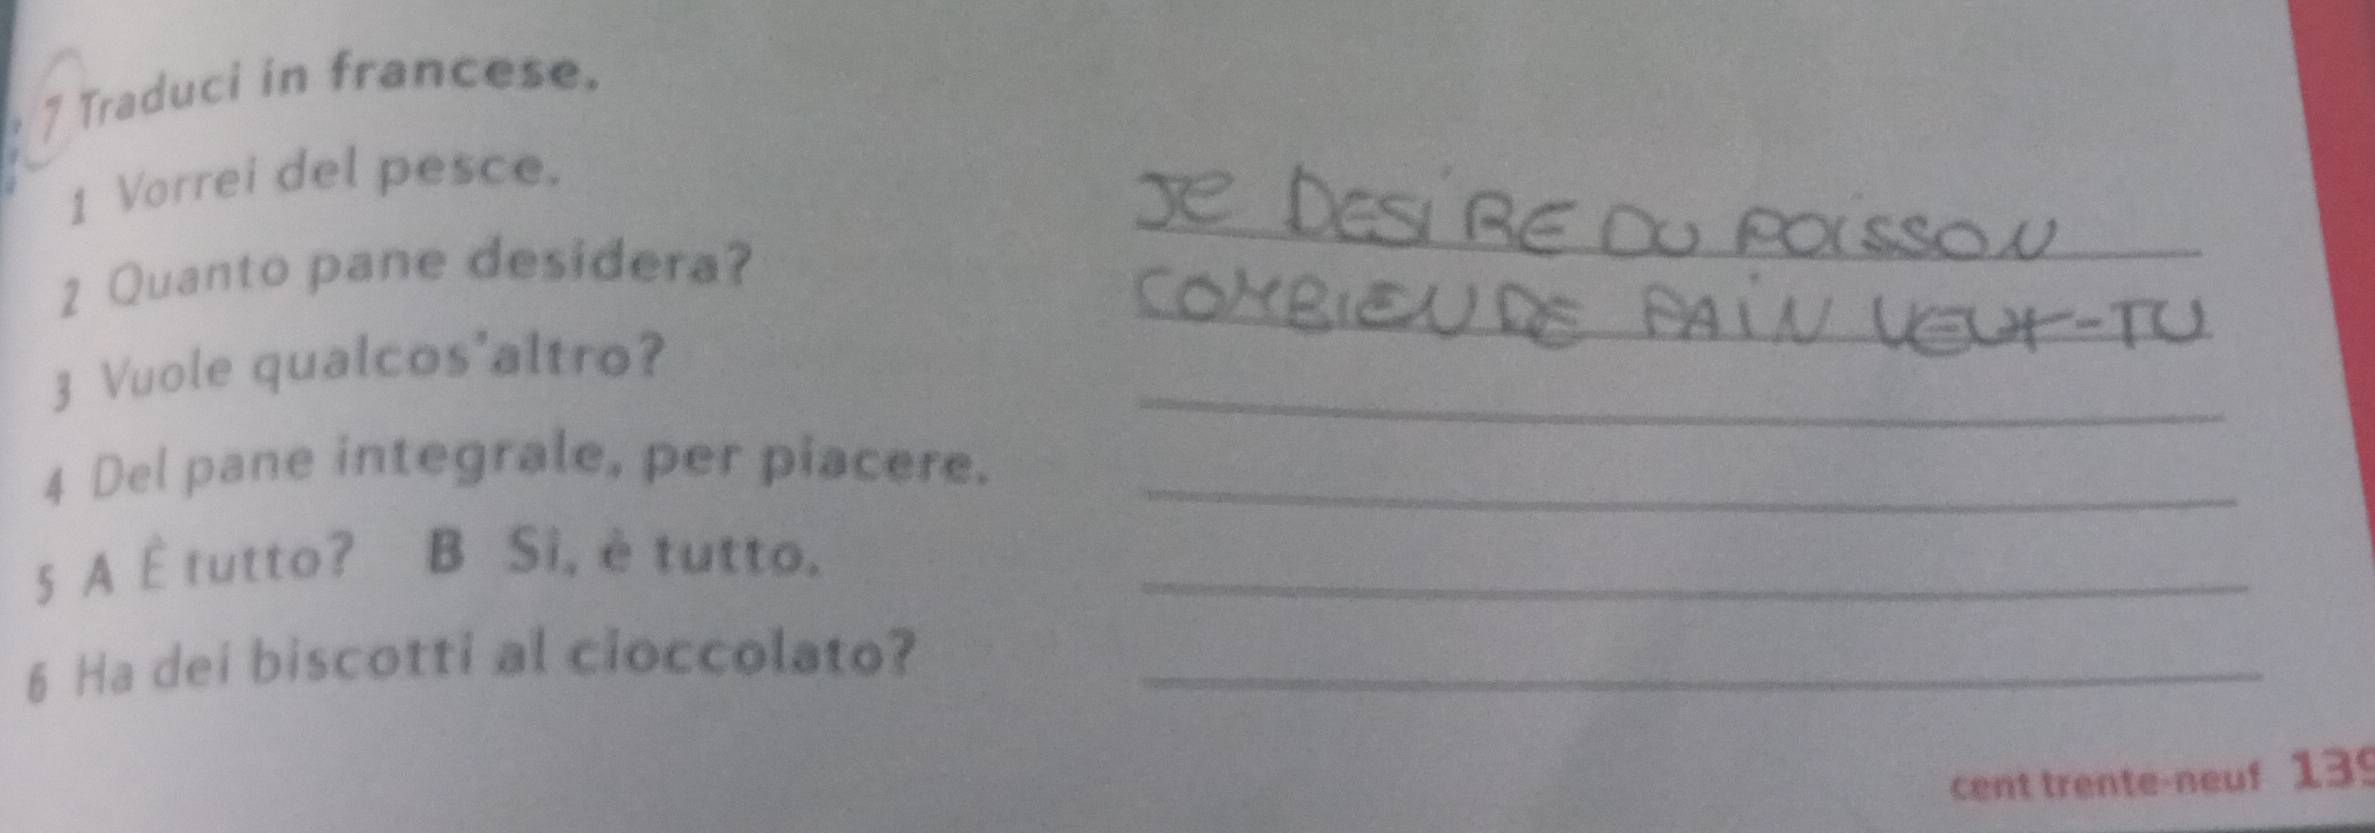 7 Traduci in francese.
1 Vorrei del pesce.
JE DESIRE DU POISSON
2 Quanto pane desidera?
COMBIEN DE PAIN VEUX-TU
3 Vuole qualcos'altro?
4 Del pane integrale, per piacere.
5 A È tutto? B Sì, è tutto.
6 Ha dei biscotti al cioccolato?
cent trente-neuf 139